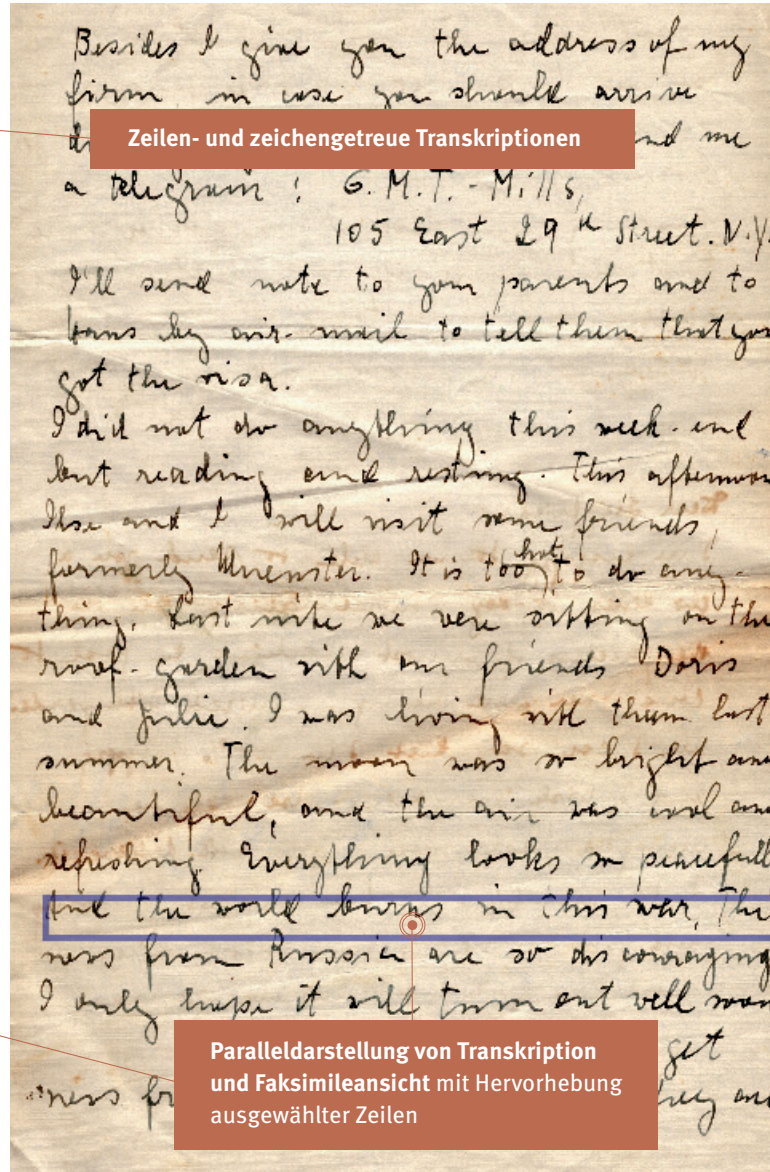 Besides I give you the address of my
firm in case you should arrive
Zeilen- und zeichengetreue Transkriptionen
and me
a telegram: G.M.T.-Mills,
105 East 29th Street. N.Y.
I'll send note to your parents and to
Hans by air-mail to tell them that you
got the visa.
I did not do anything this week-end
but reading and resting. This afternoon
Ilse and I will visit some friends,
formerly Muenster. It is too hot to do any-
thing. Last nite we were sitting on the
roof-garden with our friends Doris
and Julie. I was living with them last
summer. The moon was so bright and
beautiful, and the air was cool and
refreshing. Everything looks so peacefull
And the world burns in this war. The
news from Russia are so discouraging
I only hope it will turn out well soon
Paralleldarstellung von Transkription
und Faksimileansicht mit Hervorhebung
ausgewählter Zeilen
get
news